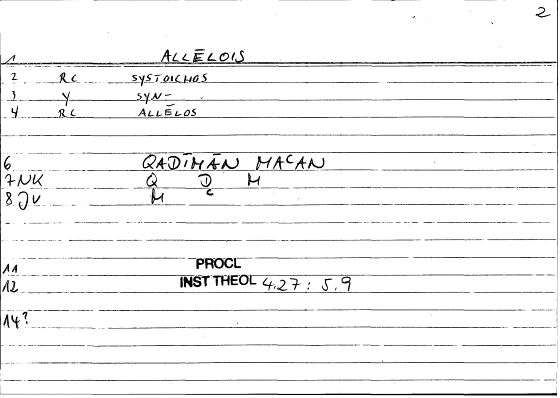 2
1 ALLĒLOIS
2 RC SYSTOICHOS
3 Y SYN-
4 RC ALLĒLOS
6 QADĪMĀN MACAN
7 NK Q D M
8 JV M C
11 PROCL
12 INST THEOL 4.27 : 5.9
14?